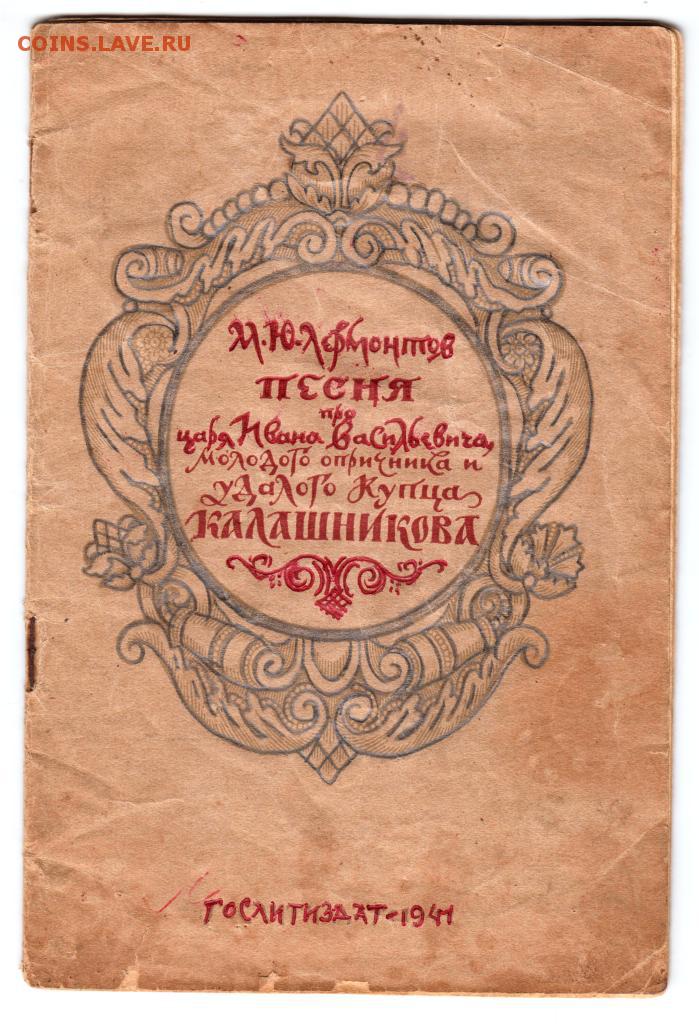 COINS.LAVE.RU
М.Ю.Лермонтов
ПЕСНЯ
про
царя Ивана Васильевича,
молодого опричника и
удалого купца
КАЛАШНИКОВА
ГОСЛИТИЗДАТ-1941